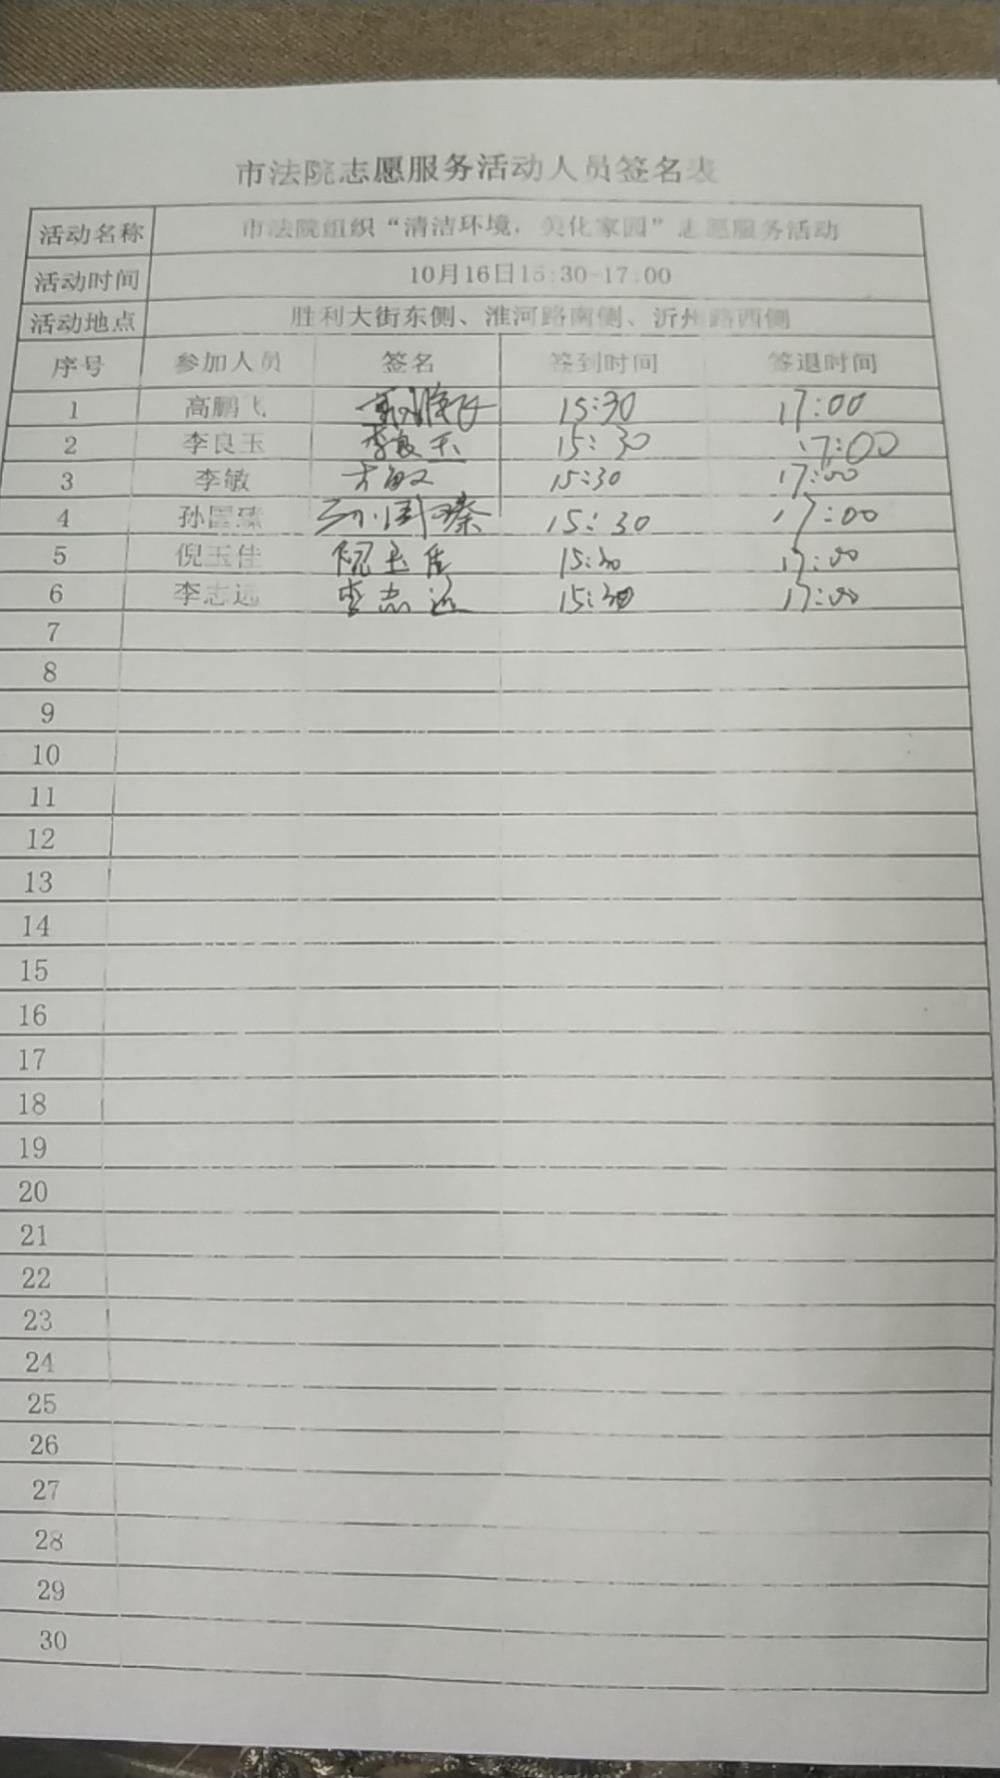 市法院志愿服务活动人员签名表
活动名称 市法院组织“清洁环境，美化家园”志愿服务活动
活动时间 10月16日15:30-17:00
活动地点 胜利大街东侧、淮河路南侧、沂州路西侧
序号 参加人员 签名 签到时间 签退时间
1 高鹏飞 高鹏飞 15:30 17:00
2 李良玉 李良玉 15:30 17:00
3 李敏 李敏 15:30 17:00
4 孙国臻 孙国臻 15:30 17:00
5 倪玉佳 倪玉佳 15:30 17:00
6 李志远 李志远 15:30 17:00
7
8
9
10
11
12
13
14
15
16
17
18
19
20
21
22
23
24
25
26
27
28
29
30